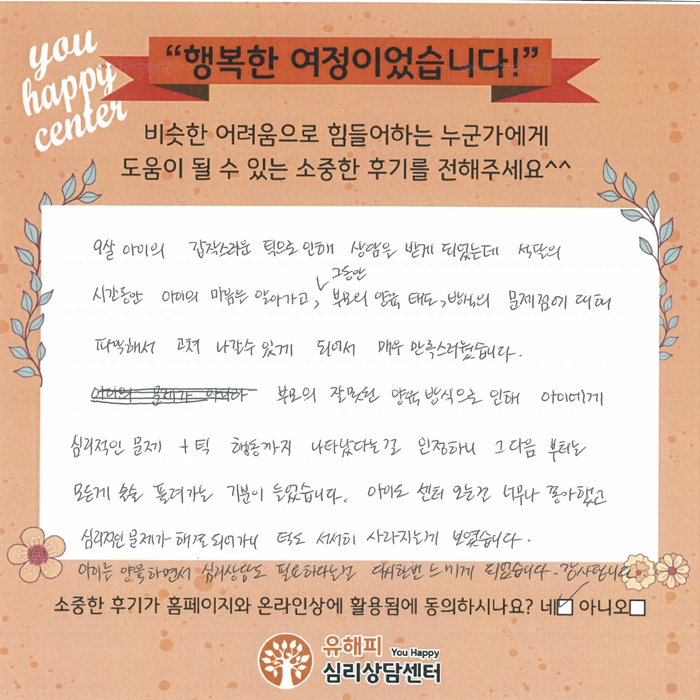 you
happy
center
“행복한 여정이었습니다!”
비슷한 어려움으로 힘들어하는 누군가에게
도움이 될 수 있는 소중한 후기를 전해주세요^^
9살 아이의 갑작스러운 틱으로 인해 상담을 받게 되었는데 석달의
그동안
시간동안 아이의 마음을 알아가고, 부모의 양육 태도, 방식의 문제점에 대해
파악해서 고쳐 나갈수 있게 되어서 매우 만족스러웠습니다.
아이의 문제가 아니라 부모의 잘못된 양육 방식으로 인해 아이에게
심리적인 문제 + 틱 행동까지 나타났다는걸 인정하니 그 다음 부터는
모든게 술술 풀려가는 기분이 들었습니다. 아이도 센터 오는걸 너무나 좋아했고
심리적인 문제가 해결 되어가니 틱도 서서히 사라지는게 보였습니다.
아이는 양육하면서 심리상담도 필요하다는걸 다시한번 느끼게 되었습니다. 감사합니다
소중한 후기가 홈페이지와 온라인상에 활용됨에 동의하시나요? 네 아니오
유해피 You Happy
심리상담센터